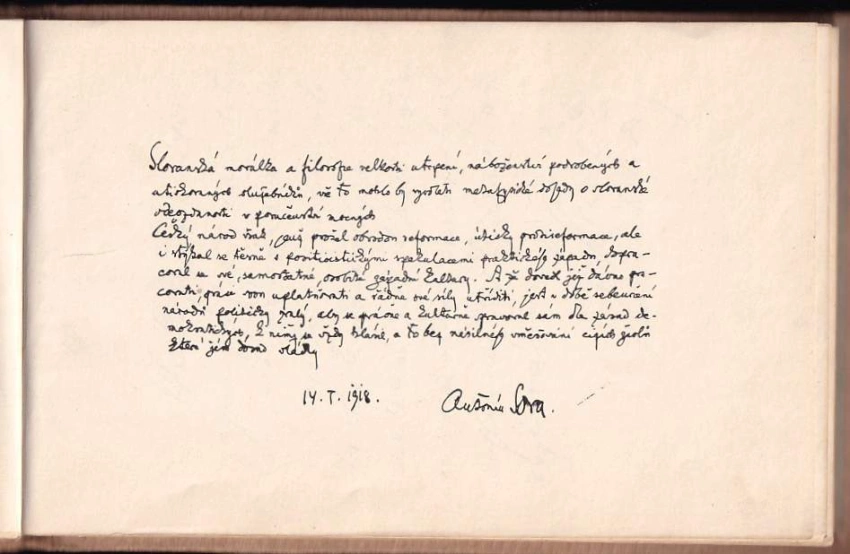 Slovanská morálka a filosofie velkosti utrpení, náboženství podrobených a
utiskovaných služebníků, to mohlo by metafysické o slovanské
v mocných
Český národ však, jenž prožil obrodou reformace, útisky protireformace, ale
i stýkal se těsně s positivistickými spekulacemi praktického západu, dopra-
coval se své, samostatné, osobité západní kultury. A že dovede již dávno pra-
covati, práci svou uplatňovati a řádně své síly utříditi, jest v době sebeurčení
národů politicky zralý, aby se právně a kulturně spravoval sám dle zásad de-
mokratických, k nimž se vždy hlásil, a to bez násilného vměšování cizích
které jím dosud vládly
14. I. 1918.
Antonín Sova.